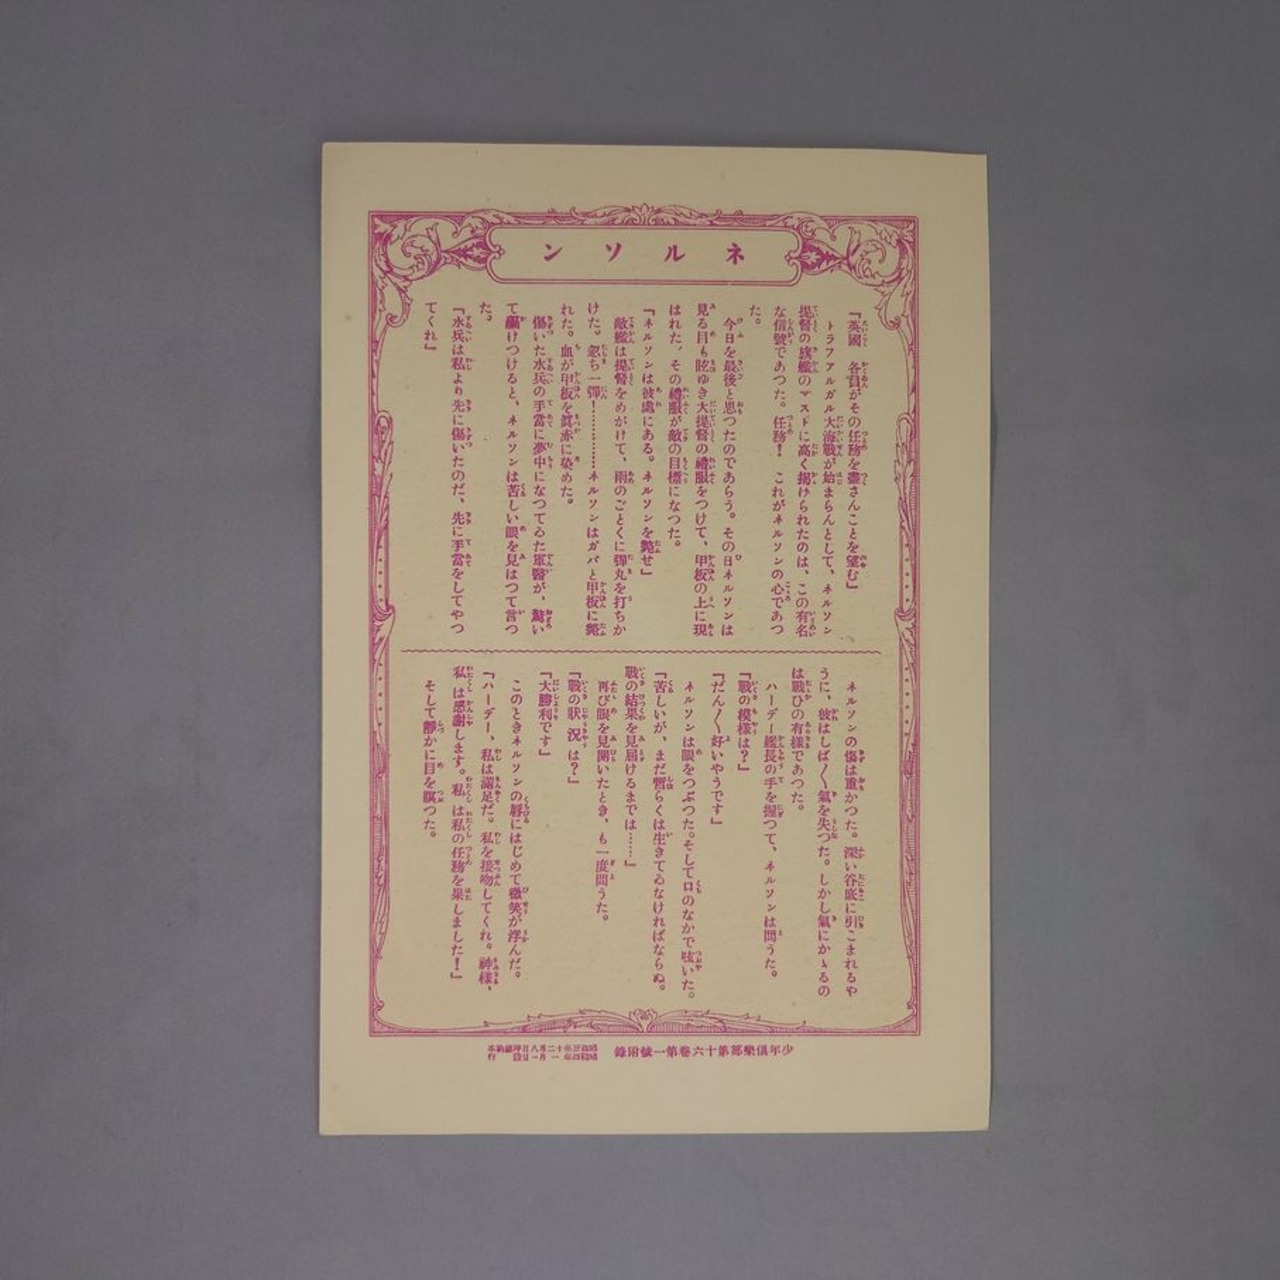 ネルソン
『英國 各員がその任務を盡さんことを望む』
トラフアルガル大海戰が始まらんとして、ネルソン
提督の旗艦のマストに高く揭げられたのは、この有名
な信號であつた。任務! これがネルソンの心であつ
た。
今日を最後と思つたのであらう。その日ネルソンは
見る目も眩ゆき大提督の禮服をつけて、甲板の上に現
はれた。その禮服が敵の目標になつた。
『ネルソンは彼處にある。ネルソンを斃せ』
敵艦は提督をめがけて、雨のごとくに彈丸を打ちか
けた。忽ち一彈!…………ネルソンはガバと甲板に斃
れた。血が甲板を眞赤に染めた。
傷いた水兵の手當に夢中になつてゐた軍醫が、驚い
て驅けつけると、ネルソンは苦しい眼を見はつて言つ
た。
『水兵は私より先に傷いたのだ、先に手當をしてやつ
てくれ』
ネルソンの傷は重かつた。深い谷底に引こまれるや
うに、彼はしば〱氣を失つた。しかし氣にかゝるの
は戰ひの有樣であつた。
ハーデー艦長の手を握つて、ネルソンは問うた。
『戰の模樣は?』
『だん〱好いやうです』
ネルソンは眼をつぶつた。そして口のなかで呟いた。
『苦しいが、まだ暫らくは生きてゐなければならぬ。
戰の結果を見屆けるまでは……』
再び眼を見開いたとき、も一度問うた。
『戰の狀況は?』
『大勝利です』
このときネルソンの唇にはじめて微笑が浮んだ。
『ハーデー、私は滿足だ。私を接吻してくれ。神樣、
私は感謝します。私は私の任務を果しました!』
そして靜かに目を瞑つた。
少年俱樂部第十六卷第一號附錄
昭和三年十二月八日印刷納本
昭和四年一月一日發行